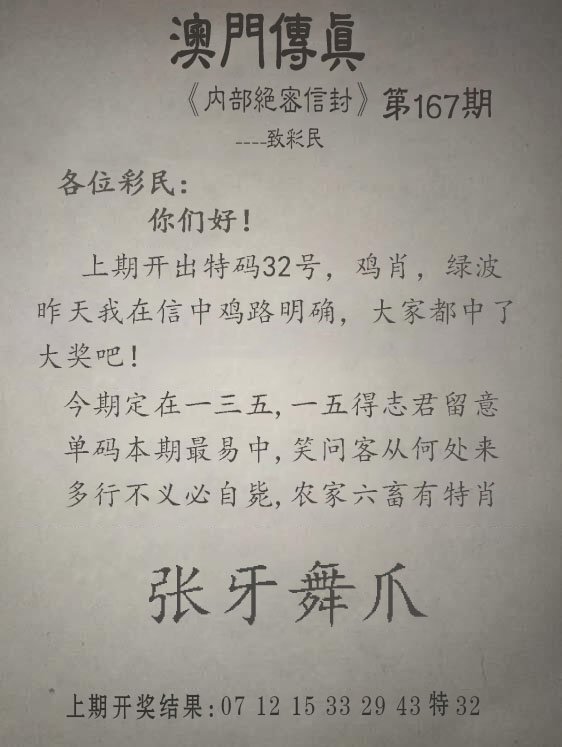 澳門傳真
《内部絕密信封》第167期
----致彩民
各位彩民：
你们好！
上期开出特码32号，鸡肖，绿波
昨天我在信中鸡路明确，大家都中了
大奖吧！
今期定在一三五,一五得志君留意
单码本期最易中,笑问客从何处来
多行不义必自毙,农家六畜有特肖
张牙舞爪
上期开奖结果:07 12 15 33 29 43 特 32